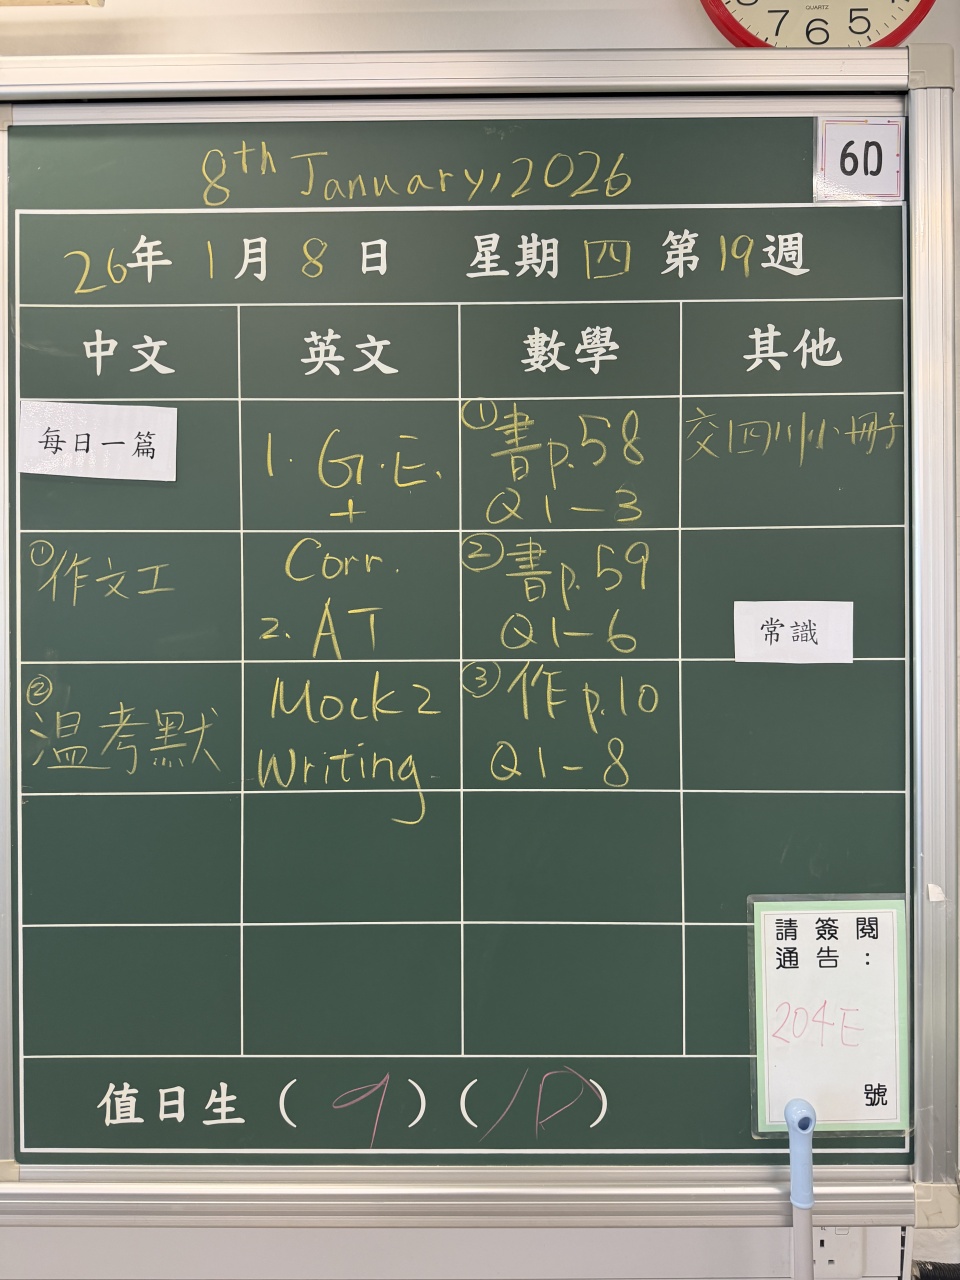 QUARTZ
7 6 5
8th January, 2026
6D
26年 1月 8日 星期四 第19週
中文
英文
數學
其他
每日一篇
①作文工
②
溫考默
1. G.E.
+
Corr.
2. AT
Mock 2
Writing
①書p.58
Q1-3
②書p.59
Q1-6
③作p.10
Q1-8
交四川小冊子
常識
請簽閱
通告：
204E
號
值日生（9）（10）